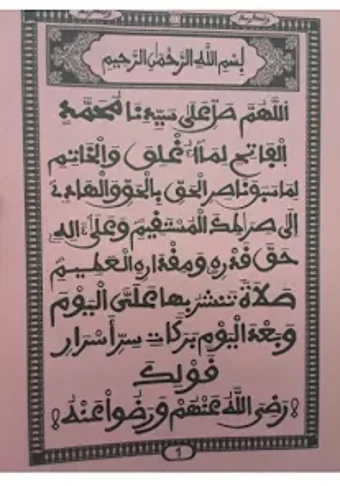 بِسْمِ اللَّهِ الرَّحْمَٰنِ الرَّحِيمِ
اللَّهُمَّ صَلِّ عَلَى سَيِّدِنَا مُحَمَّدٍ
الْفَاتِحِ لِمَا أُغْلِقَ وَالْخَاتِمِ
لِمَا سَبَقَ نَاصِرِ الْحَقِّ بِالْحَقِّ وَالْهَادِي
إِلَى صِرَاطِكَ الْمُسْتَقِيمِ وَعَلَى آلِهِ
حَقَّ قَدْرِهِ وَمِقْدَارِهِ الْعَظِيمِ
صَلَاةً تَنْشُرُ بِهَا عَلَيَّ الْيَوْمَ
وَبَعْدَ الْيَوْمِ بَرَكَاتِ سِرِّ أَسْرَارِ
قَوْلِكَ
!رَضِيَ اللَّهُ عَنْهُمْ وَرَضُوا عَنْهُ!
1